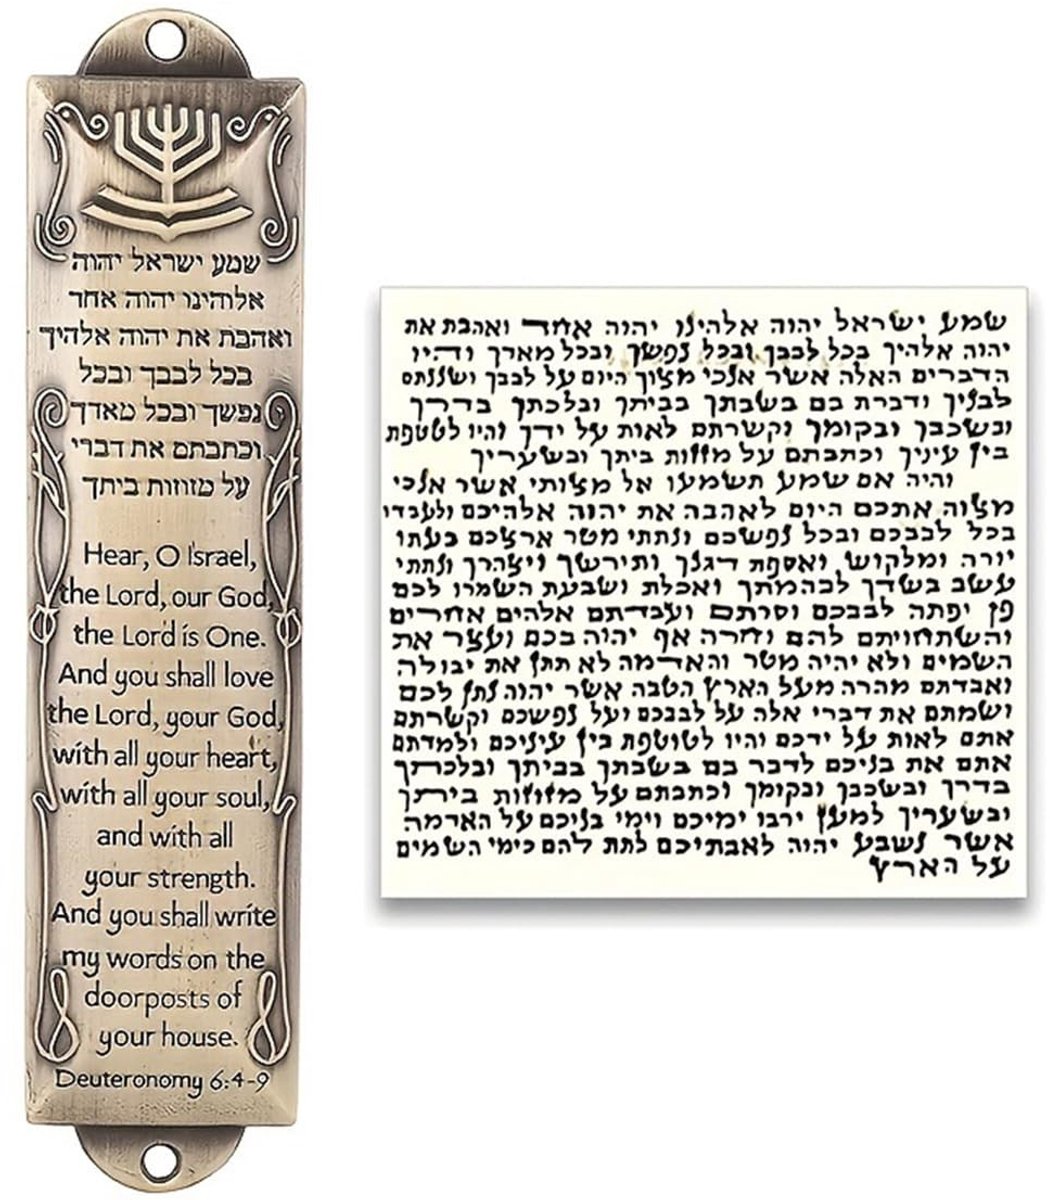 שמע ישראל יהוה
אלוהינו יהוה אחד
ואהבת את יהוה אלהיך
בכל לבבך ובכל
נפשך ובכל מאדך
וכתבתם את דברי
על מזוזות ביתך
Hear, O Israel,
the Lord, our God,
the Lord is One.
And you shall love
the Lord, your God,
with all your heart,
with all your soul,
and with all
your strength.
And you shall write
my words on the
doorposts of
your house.
Deuteronomy 6:4-9
שמע ישראל יהוה אלהינו יהוה אחד ואהבת את
יהוה אלהיך בכל לבבך ובכל נפשך ובכל מארך והיו
הדברים האלה אשר אנכי מצוך היום על לבבך ושננתם
לבניך ודברת בם בשבתך בביתך ובלכתך בדרך
ובשכבך ובקומך וקשרתם לאות על ידך והיו לטטפת
בין עיניך וכתבתם על מזוזות ביתך ובשעריך
והיה אם שמע תשמעו אל מצותי אשר אנכי
מצוה אתכם היום לאהבה את יהוה אלהיכם ולעבדו
בכל לבבכם ובכל נפשכם ונתתי מטר ארצכם בעתו
יורה ומלקוש ואספת דגנך ותירשך ויצהרך ונתתי
עשב בשדך לבהמתך ואכלת ושבעת השמרו לכם
פן יפתה לבבכם וסרתם ועבדתם אלהים אחרים
והשתחויתם להם וחרה אף יהוה בכם ועצר את
השמים ולא יהיה מטר והאדמה לא תתן את יבולה
ואבדתם מהרה מעל הארץ הטבה אשר יהוה נתן לכם
ושמתם את דברי אלה על לבבכם ועל נפשכם וקשרתם
אתם לאות על ידכם והיו לטוטפת בין עיניכם ולמדתם
אתם את בניכם לדבר בם בשבתך בביתך ובלכתך
בדרך ובשכבך ובקומך וכתבתם על מזוזות ביתך
ובשעריך למען ירבו ימיכם וימי בניכם על האדמה
אשר נשבע יהוה לאבתיכם לתת להם כימי השמים
על הארץ